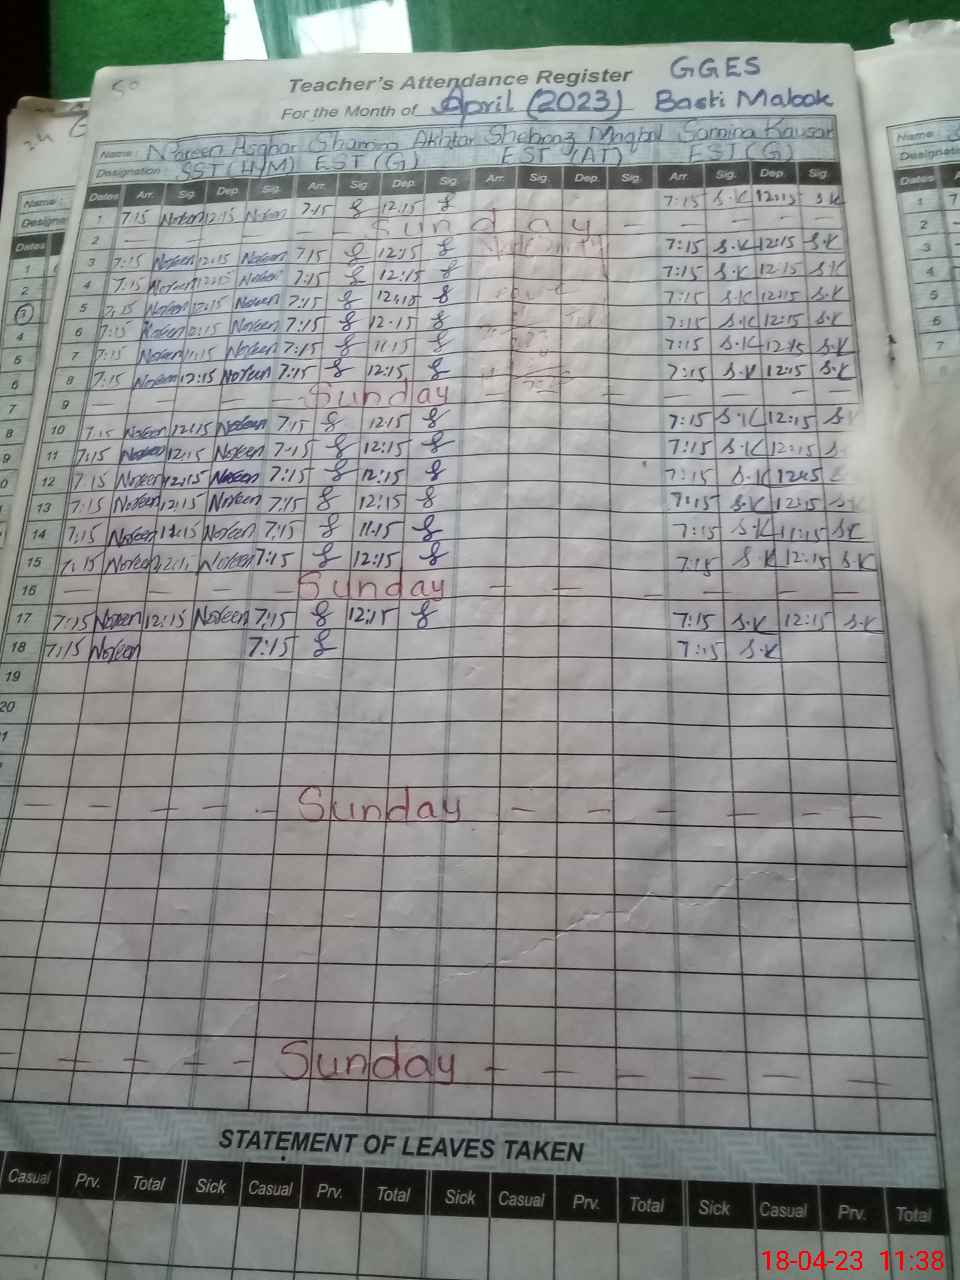 50
Teacher's Attendance Register GGES
For the Month of April (2023) Basti Malook
Name : Noreen Asghar Shamim Akhtar Shehnaz Maqbol Samina Kausar
Designation : SST (H/M) EST (G) EST (AT) EST (G)
Dates Arr. Sig. Dep. Sig. Arr. Sig. Dep. Sig. Arr. Sig. Dep. Sig. Arr. Sig. Dep. Sig.
1 7:15 Noreen 12:15 Noreen 7:15 12:15 7:15 S.K 12:15 S.K
2 — — — — Sunday — — — — —
3 7:15 Noreen 12:15 Noreen 7:15 12:15 7:15 S.K 12:15 S.K
4 7:15 Noreen 12:15 Noreen 7:15 12:15 7:15 S.K 12:15 S.K
5 7:15 Noreen 12:15 Noreen 7:15 12:15 7:15 S.K 12:15 S.K
6 7:15 Noreen 12:15 Noreen 7:15 12:15 7:15 S.K 12:15 S.K
7 7:15 Noreen 11:15 Noreen 7:15 11:15 7:15 S.K 12:15 S.K
8 7:15 Noreen 12:15 Noreen 7:15 12:15 7:15 S.K 12:15 S.K
9 — — — — Sunday — — — — — —
10 7:15 Noreen 12:15 Noreen 7:15 12:15 7:15 S.K 12:15 S.
11 7:15 Noreen 12:15 Noreen 7:15 12:15 7:15 S.K 12:15 S.
12 7:15 Noreen 12:15 Noreen 7:15 12:15 7:15 S.K 12:15
13 7:15 Noreen 12:15 Noreen 7:15 12:15 7:15 S.K 12:15 S.
14 7:15 Noreen 11:15 Noreen 7:15 11:15 7:15 S.K 11:15 S.K
15 7:15 Noreen 12:15 Noreen 7:15 12:15 7:15 S.K 12:15 S.K
16 — — — — Sunday — — — — — —
17 7:15 Noreen 12:15 Noreen 7:15 12:15 7:15 S.K 12:15 S.K
18 7:15 Noreen 7:15 7:15 S.K
19
20
— — — — — Sunday — — — — — —
— — — — — Sunday — — — — — —
STATEMENT OF LEAVES TAKEN
Casual Prv. Total Sick Casual Prv. Total Sick Casual Prv. Total Sick Casual Prv. Total
18-04-23 11:38